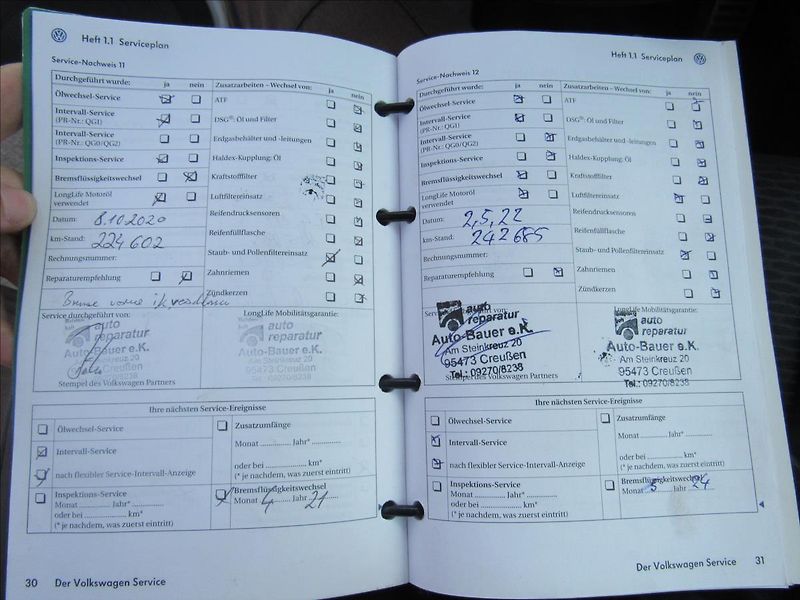 Heft 1.1 Serviceplan
Service-Nachweis 11
Durchgeführt wurde: ja nein
Ölwechsel-Service
Intervall-Service
(PR-Nr.: QG1)
Intervall-Service
(PR-Nr.: QG0/QG2)
Inspektions-Service
Bremsflüssigkeitswechsel
LongLife Motoröl
verwendet
Datum: 8.10.2020
km-Stand: 224602
Rechnungsnummer:
Reparaturempfehlung
Zusatzarbeiten – Wechsel von: ja nein
ATF
DSG®: Öl und Filter
Erdgasbehälter und -leitungen
Haldex-Kupplung: Öl
Kraftstofffilter
Luftfiltereinsatz
Reifendrucksensoren
Reifenfüllflasche
Staub- und Pollenfiltereinsatz
Zahnriemen
Zündkerzen
Service durchgeführt von:
auto
reparatur
Auto-Bauer e.K.
Stempel des Volkswagen Partners
LongLife Mobilitätsgarantie:
auto
reparatur
Auto-Bauer e.K.
Am Steinkreuz 20
95473 Creußen
Tel.: 09270/8238
Ihre nächsten Service-Ereignisse
Ölwechsel-Service
Intervall-Service
nach flexibler Service-Intervall-Anzeige
Inspektions-Service
Monat .............. Jahr* ..............
oder bei .............. km*
(* je nachdem, was zuerst eintritt)
Zusatzumfänge
Monat .............. Jahr* ..............
oder bei .............. km*
(* je nachdem, was zuerst eintritt)
Bremsflüssigkeitswechsel
Monat 4 Jahr 21
30 Der Volkswagen Service
Heft 1.1 Serviceplan
Service-Nachweis 12
Durchgeführt wurde: ja nein
Ölwechsel-Service
Intervall-Service
(PR-Nr.: QG1)
Intervall-Service
(PR-Nr.: QG0/QG2)
Inspektions-Service
Bremsflüssigkeitswechsel
LongLife Motoröl
verwendet
Datum: 2,5,22
km-Stand: 242685
Rechnungsnummer:
Reparaturempfehlung
Zusatzarbeiten – Wechsel von: ja nein
ATF
DSG®: Öl und Filter
Erdgasbehälter und -leitungen
Haldex-Kupplung: Öl
Kraftstofffilter
Luftfiltereinsatz
Reifendrucksensoren
Reifenfüllflasche
Staub- und Pollenfiltereinsatz
Zahnriemen
Zündkerzen
Service durchgeführt von:
auto
reparatur
Auto-Bauer e.K.
Am Steinkreuz 20
95473 Creußen
Tel.: 09270/8238
Stempel des Volkswagen Partners
LongLife Mobilitätsgarantie:
auto
reparatur
Auto-Bauer e.K.
Am Steinkreuz 20
95473 Creußen
Tel.: 09270/8238
Ihre nächsten Service-Ereignisse
Ölwechsel-Service
Intervall-Service
nach flexibler Service-Intervall-Anzeige
Inspektions-Service
Monat .............. Jahr* ..............
oder bei .............. km*
(* je nachdem, was zuerst eintritt)
Zusatzumfänge
Monat .............. Jahr* ..............
oder bei .............. km*
(* je nachdem, was zuerst eintritt)
Bremsflüssigkeitswechsel
Monat 5 Jahr 24
Der Volkswagen Service 31